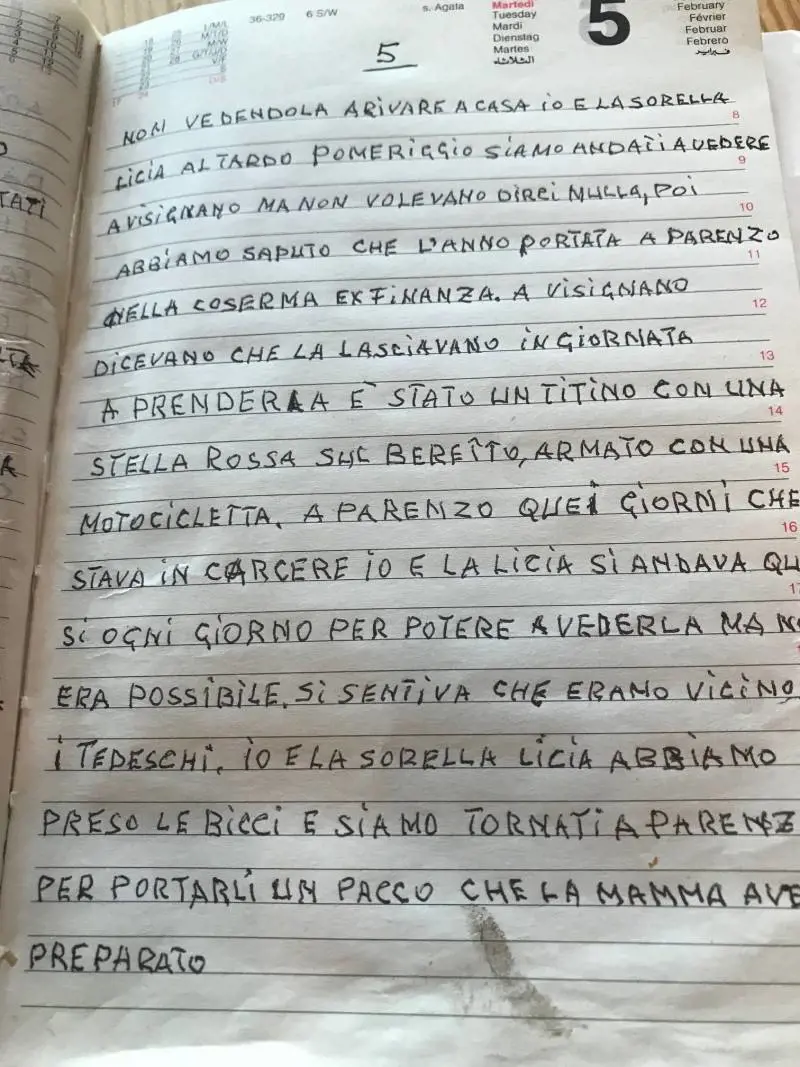 36-329 6 S/W
s. Agata
Martedì
Tuesday
Mardi
Dienstag
Martes
الثلاثاء
5
February
Février
Februar
Febrero
فبراير
5
NON VEDENDOLA ARIVARE A CASA IO E LA SORELLA
8
LICIA AL TARDO POMERIGGIO SIAMO ANDATI A VEDERE
9
A VISIGNANO MA NON VOLEVANO DIRCI NULLA, POI
10
ABBIAMO SAPUTO CHE L'ANNO PORTATA A PARENZO
11
NELLA COSERMA EX FINANZA. A VISIGNANO
12
DICEVANO CHE LA LASCIAVANO IN GIORNATA
13
A PRENDERLA E` STATO UN TITINO CON UNA
14
STELLA ROSSA SUL BERETTO, ARMATO CON UNA
15
MOTOCICLETTA. A PARENZO QUEI GIORNI CHE
16
STAVA IN CARCERE IO E LA LICIA SI ANDAVA QU
17
SI OGNI GIORNO PER POTERE A VEDERLA MA N
ERA POSSIBILE. SI SENTIVA CHE ERANO VICINO
I TEDESCHI. IO E LA SORELLA LICIA ABBIAMO
PRESO LE BICCI E SIAMO TORNATI A PARENZ
PER PORTARLI UN PACCO CHE LA MAMMA AVE
PREPARATO
TATI